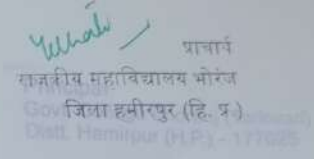 प्राचार्य
राजकीय महाविद्यालय भोरंज
जिला हमीरपुर (हि. प्र.)
Distt. Hamirpur (H.P.) - 177025